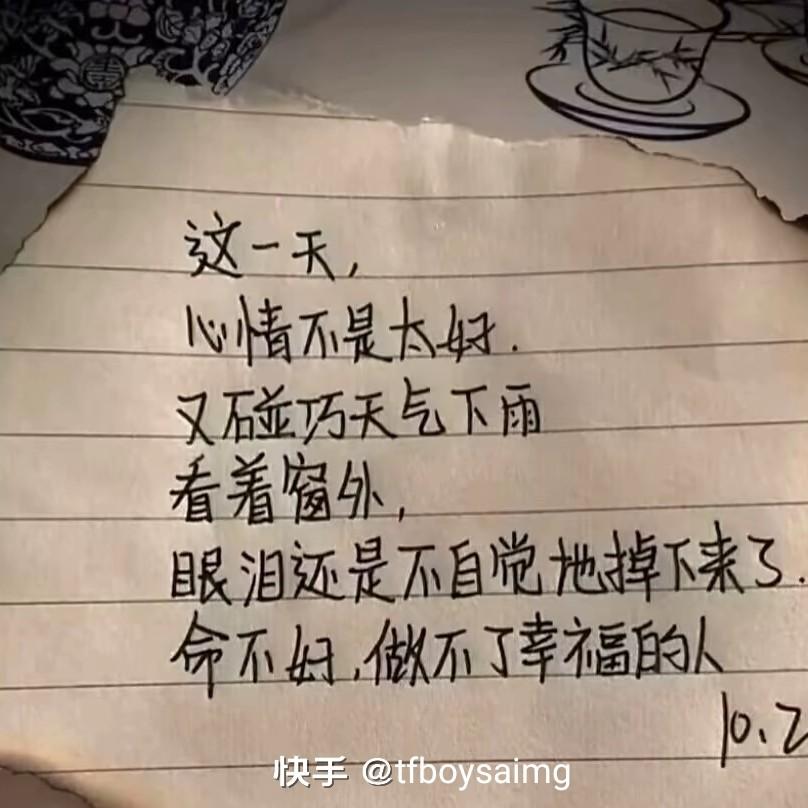 这一天，
心情不是太好.
又碰巧天气下雨
看着窗外，
眼泪还是不自觉地掉下来了.
命不好,做不了幸福的人
10.2
快手 @tfboysaimg